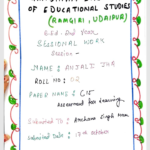 OF EDUCATIONAL STUDIES
(RAMGIRI, UDAIPUR)
B.Ed. 2nd Year
SESSIONAL WORK
Session -
NAME : ANJALI JHA
ROLL NO : 02
PAPER NAME : C15
Assessment for Learning
Submitted To : Archana Singh Mam
Submitted Date : 17th october